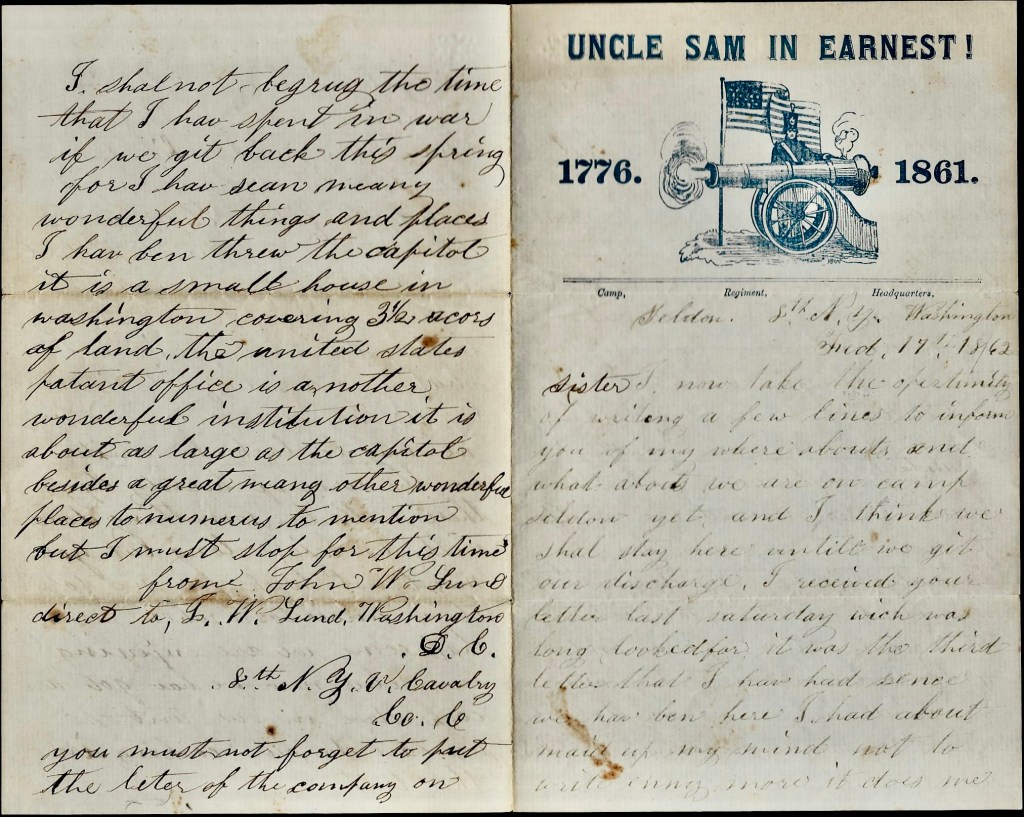 I. shal not begrug the time
that I hav spent in war
if we git back this spring
for I hav sean meany
wonderful things and places
I hav ben threw the capitol
it is a small house in
washington covering 3½ acors
of land, the united states
patant office is a nother
wonderful institution it is
about as large as the capitol
besides a great meany other wonderful
places to numerus to mention
but I must stop for this time
frome John W. Lund
direct to, J. W. Lund, Washington
D. C.
8th N. Y. V. Cavalry
Co. C
you must not forget to put
the leter of the company on
UNCLE SAM IN EARNEST!
1776. 1861.
Camp, Regiment, Headquarters,
Seldon. 8th N. Y. Washington
17th 1862
sister I, now take the opertunity
of writeng a few lines to inform
you of my where abouts and
what abouts we are on camp
seldon yet and I think we
shal stay here untill we git
our discharge, I received your
letter last saturday wich was
long looked for it was the third
letter that I hav had sence
we hav ben here I had about
maid up my mind not to
write enny more it does me